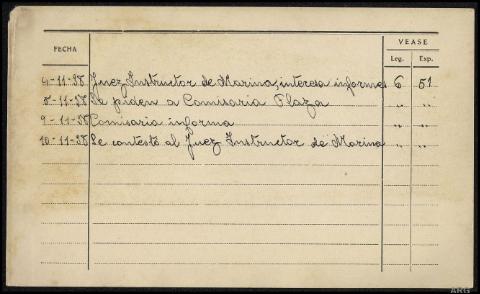 FECHA
VEASE
Leg. Exp.
4-11-38 Juez Instructor de Marina, interesa informes 6 51
8-11-38 Se piden a Comisaria Plaza " "
9-11-38 Comisaria informa " "
10-11-38 Se contestó al Juez Instructor de Marina " "